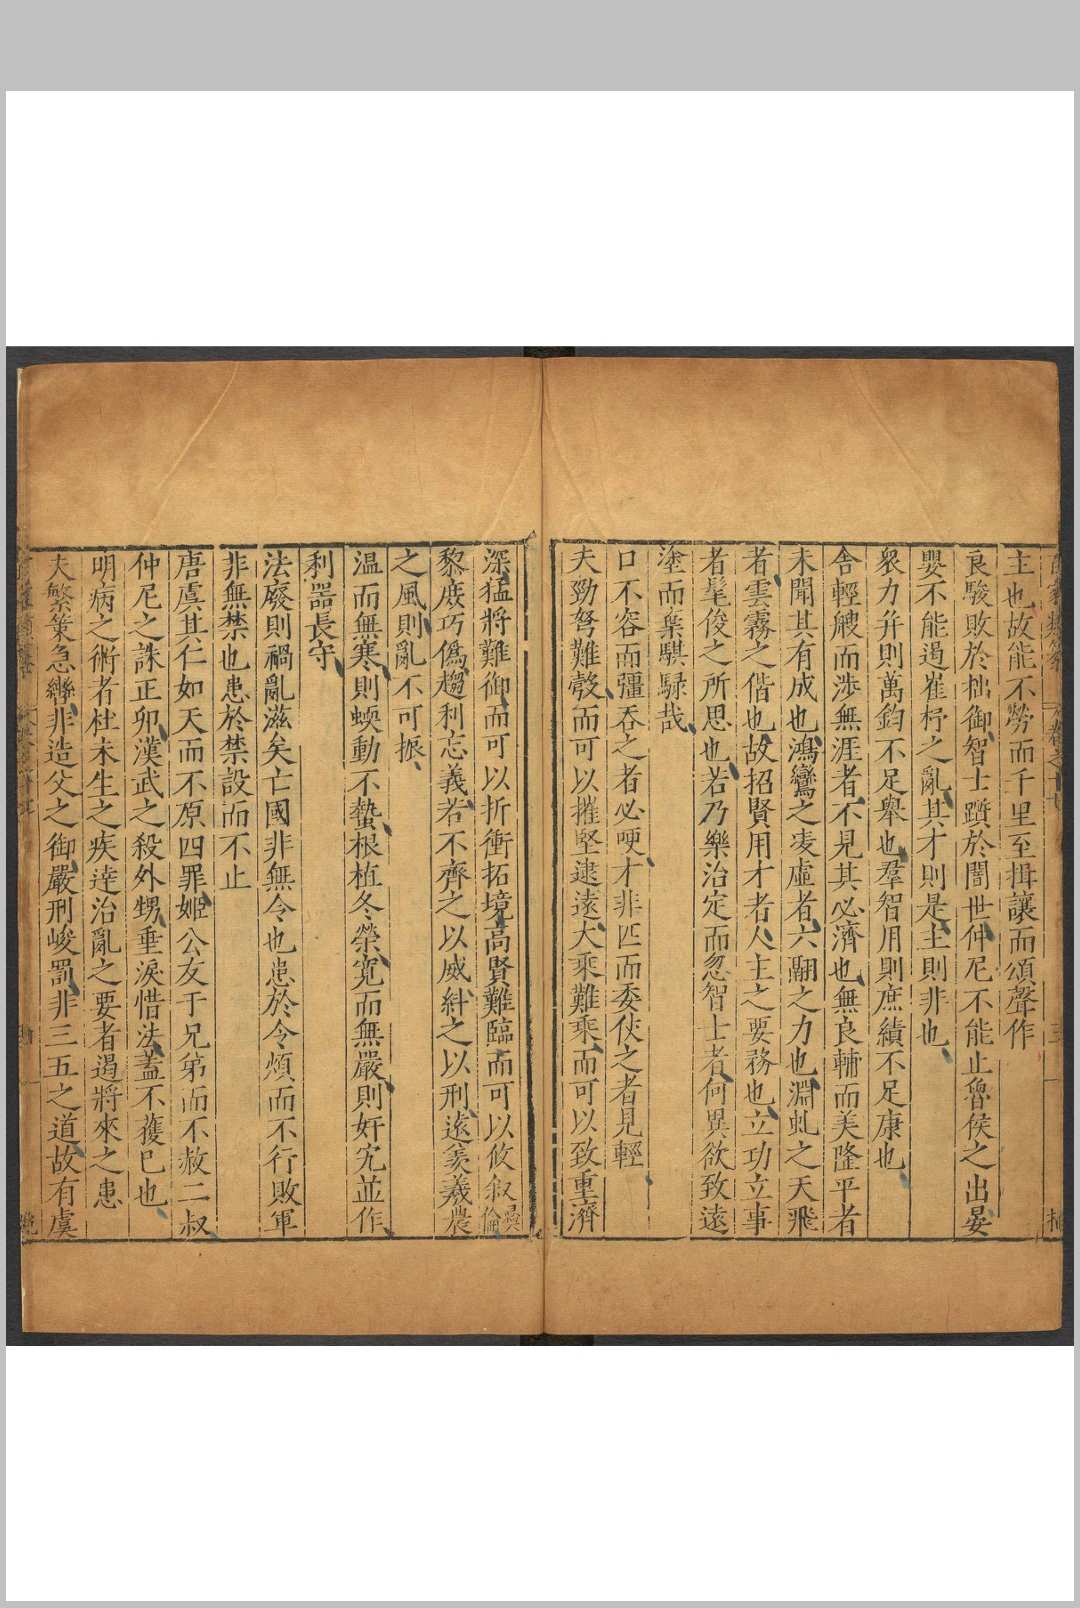 主也故能不勞而千里至揖讓而頌聲作
良駿敗於拙御智士躓於闇世仲尼不能止魯侯之出晏
嬰不能遏崔杼之亂其才則是主則非也
衆力并則萬鈞不足舉也羣智用則庶績不足康也
舍輕艘而涉無涯者不見其必濟也無良輔而羨隆平者
未聞其有成也鴻鸞之凌虛者六翮之力也淵虬之天飛
者雲霧之偕也故招賢用才者人主之要務也立功立事
者髦俊之所思也若乃樂治定而忽智士者何異欲致遠
塗而棄騏騄哉
口不容而彊吞之者必哽才非匹而委仗之者見輕
夫勁弩難彀而可以摧堅逮遠大乘難乘而可以致重濟
深猛將難御而可以折衝拓境高賢難臨而可以攸叙彝倫
黎庶巧偽趨利忘義若不齊之以威糾之以刑遠羨羲農
之風則亂不可振
温而無寒則蝡動不蟄根植冬榮寛而無嚴則奸宄並作
利器長守
法廢則禍亂滋矣亡國非無令也患於令煩而不行敗軍
非無禁也患於禁設而不止
唐虞其仁如天而不原四罪姬公友于兄弟而不赦二叔
仲尼之誅正卯漢武之殺外甥垂淚惜法蓋不獲已也
明病之術者杜未生之疾達治亂之要者遏將來之患
夫繁策急轡非造父之御嚴刑峻罰非三五之道故有虞